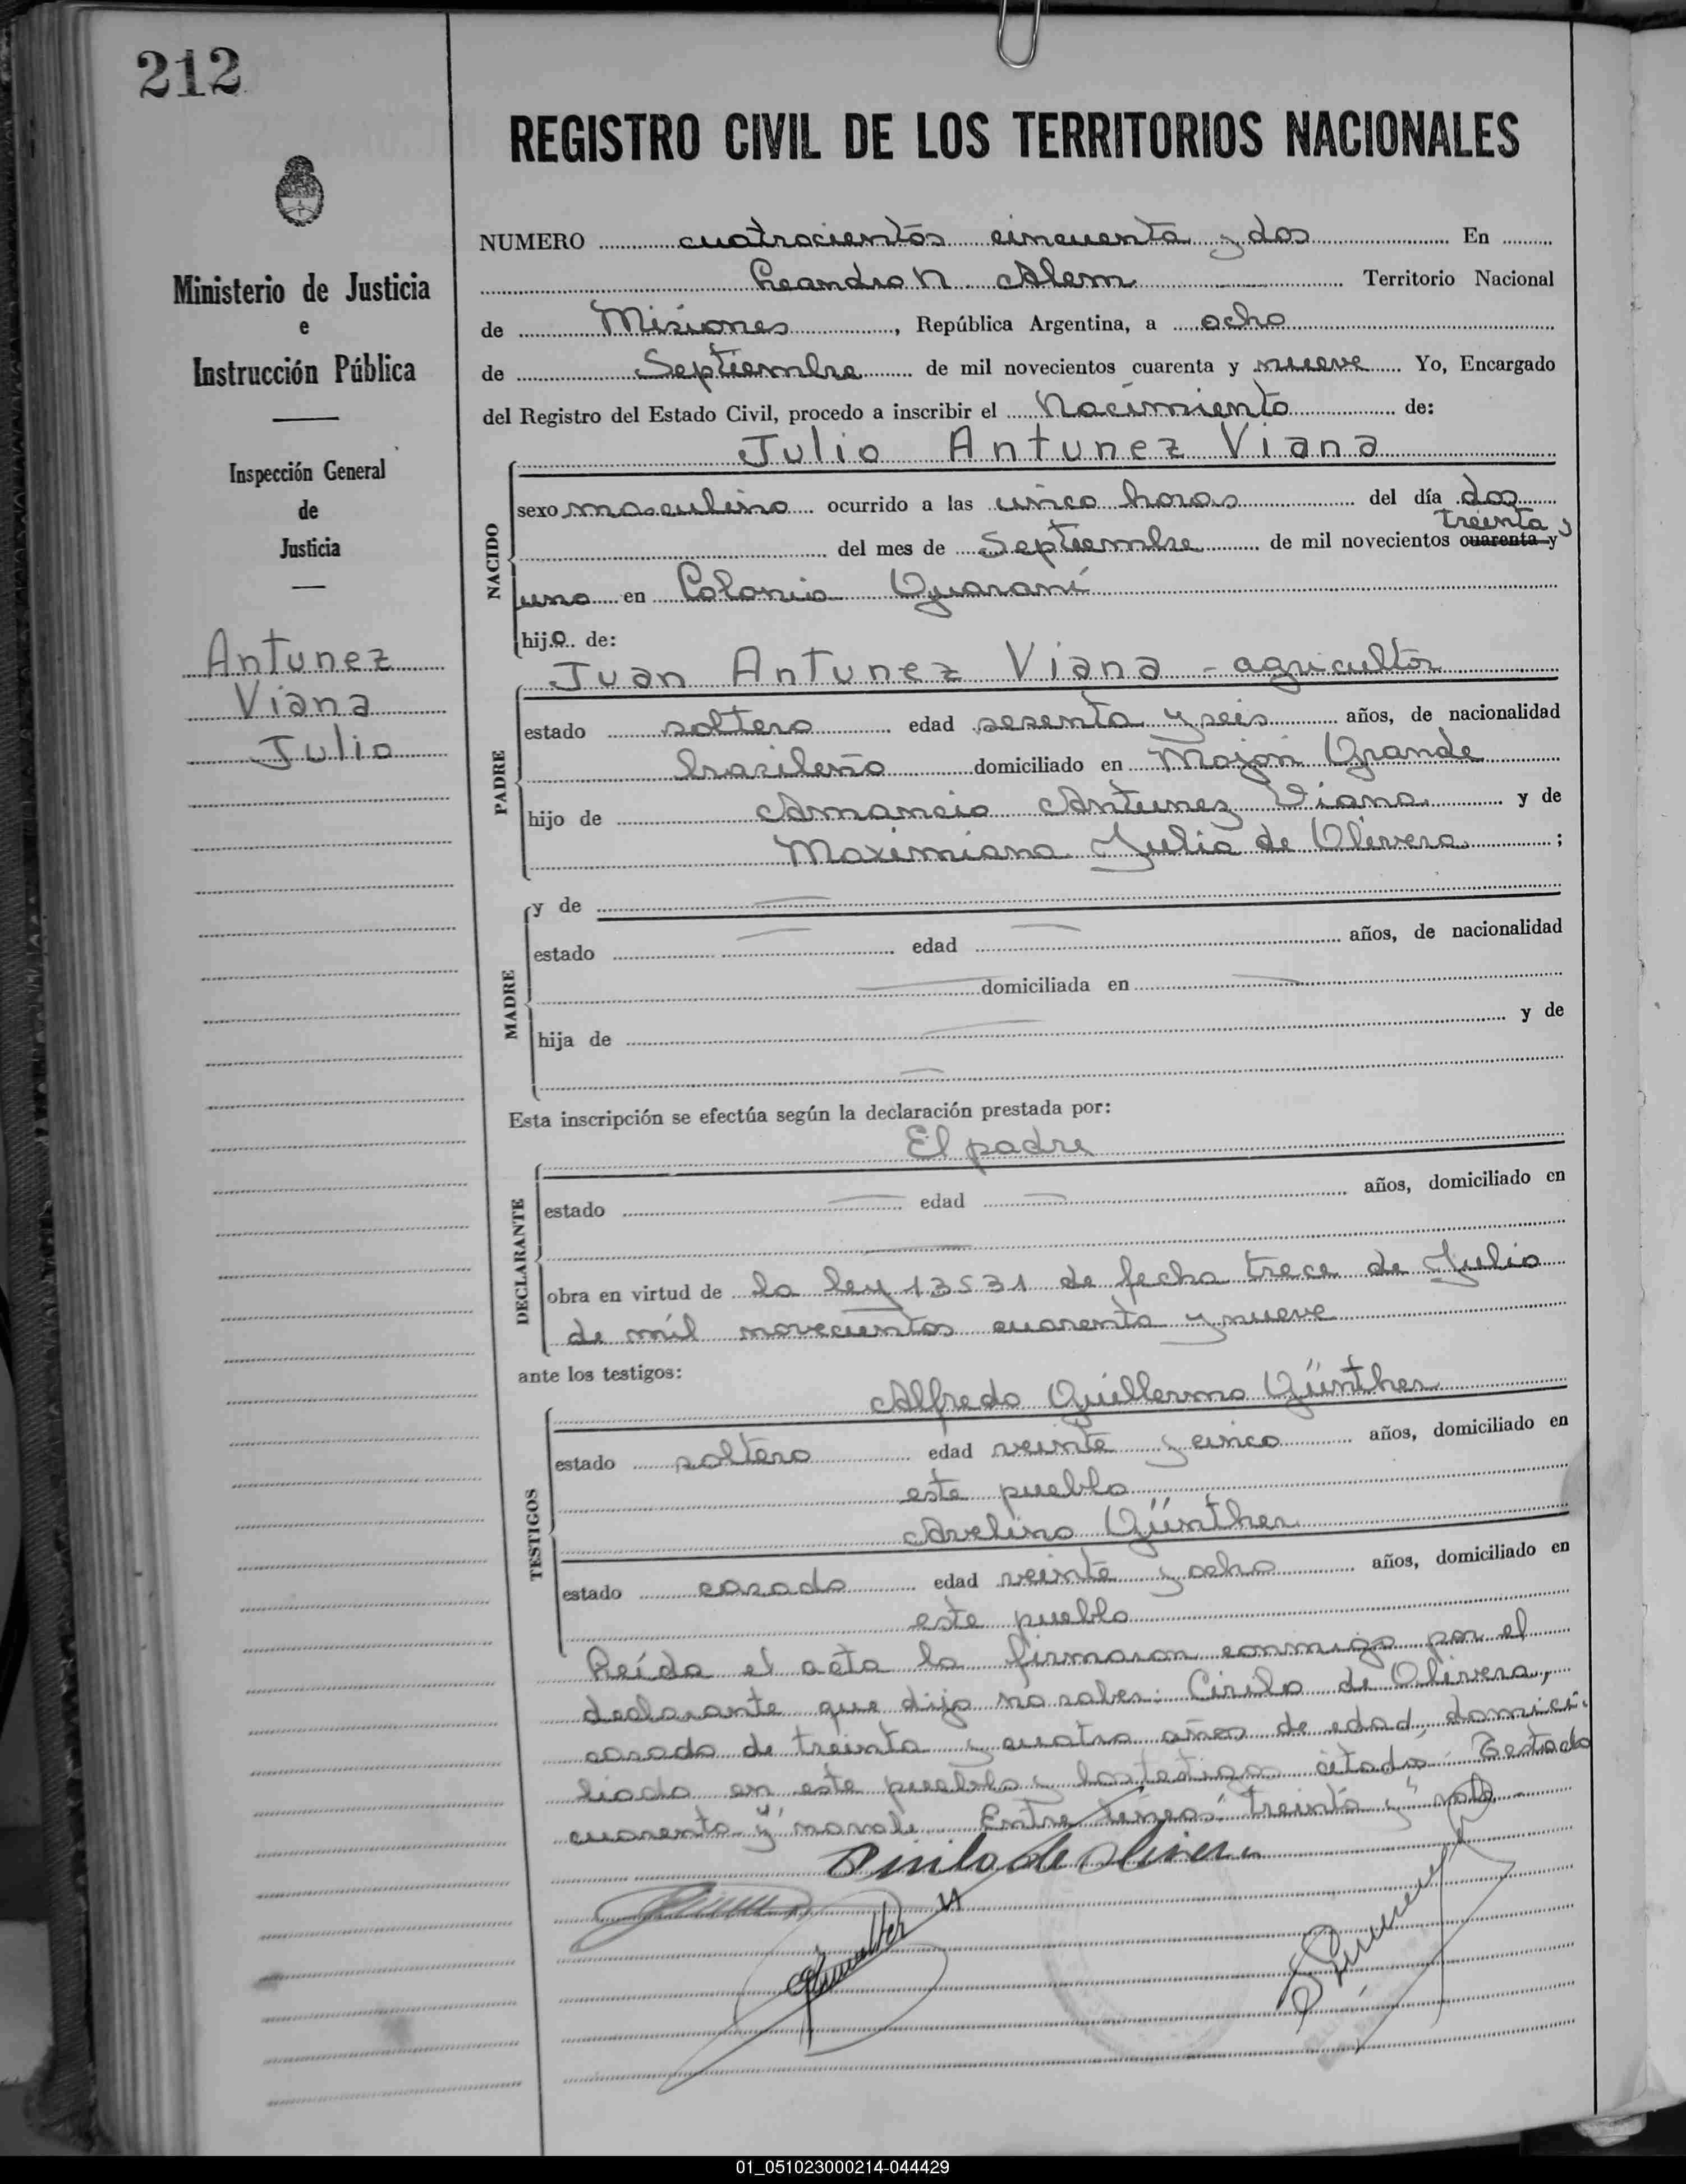 212
REGISTRO CIVIL DE LOS TERRITORIOS NACIONALES
Ministerio de Justicia
e
Instrucción Pública
Inspección General
de
Justicia
Antunez
Viana
Julio
NUMERO cuatrocientos cincuenta y dos En
Leandro N. Alem Territorio Nacional
de Misiones, República Argentina, a ocho
de Septiembre de mil novecientos cuarenta y nueve Yo, Encargado
del Registro del Estado Civil, procedo a inscribir el Nacimiento de:
NACIDO
Julio Antunez Viana
sexo masculino ocurrido a las cinco horas del día dos
treinta y
del mes de Septiembre de mil novecientos cuarenta y
uno en Colonia Guaraní
hijo de:
PADRE
Juan Antunez Viana - agricultor
estado soltero edad sesenta y seis años, de nacionalidad
brasileño domiciliado en Mojón Grande
hijo de Amancio Antunez Viana y de
Maximiana Julia de Olivera ;
MADRE
y de
estado edad años, de nacionalidad
domiciliada en
hija de y de
Esta inscripción se efectúa según la declaración prestada por:
DECLARANTE
El padre
estado edad años, domiciliado en
obra en virtud de la ley 13531 de fecha trece de Julio
de mil novecientos cuarenta y nueve
ante los testigos:
TESTIGOS
Alfredo Guillermo Günther
estado soltero edad veinte y cinco años, domiciliado en
este pueblo
Avelino Günther
estado casado edad veinte y ocho años, domiciliado en
este pueblo
Leída el acta la firmaron conmigo por el
declarante que dijo no saber: Cirilo de Olivera,
casado de treinta y cuatro años de edad, domici-
liado en este pueblo y los testigos citados: Testado
cuarenta y" no vale. Entre líneas "treinta y" vale
Cirilo de Olivera
01_051023000214-044429